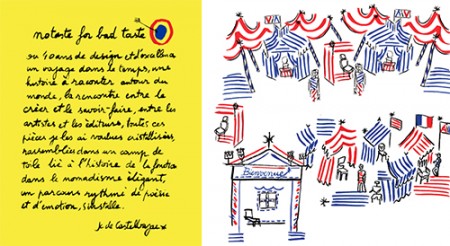 no taste for bad taste
ou 40 ans de design et d'excellence
un voyage dans le temps, une
histoire à raconter autour du
monde, la rencontre entre le
créer et le savoir-faire, entre les
artistes et les éditeurs, toutes ces
pièces je les ai voulues cristallisées,
rassemblées dans un camp de
toile lié à l'histoire de la
dans le nomadisme élégant,
un parcours rythmé de poésie
et d'émotion, s'installe.
de Castelbajac
Bienvenue